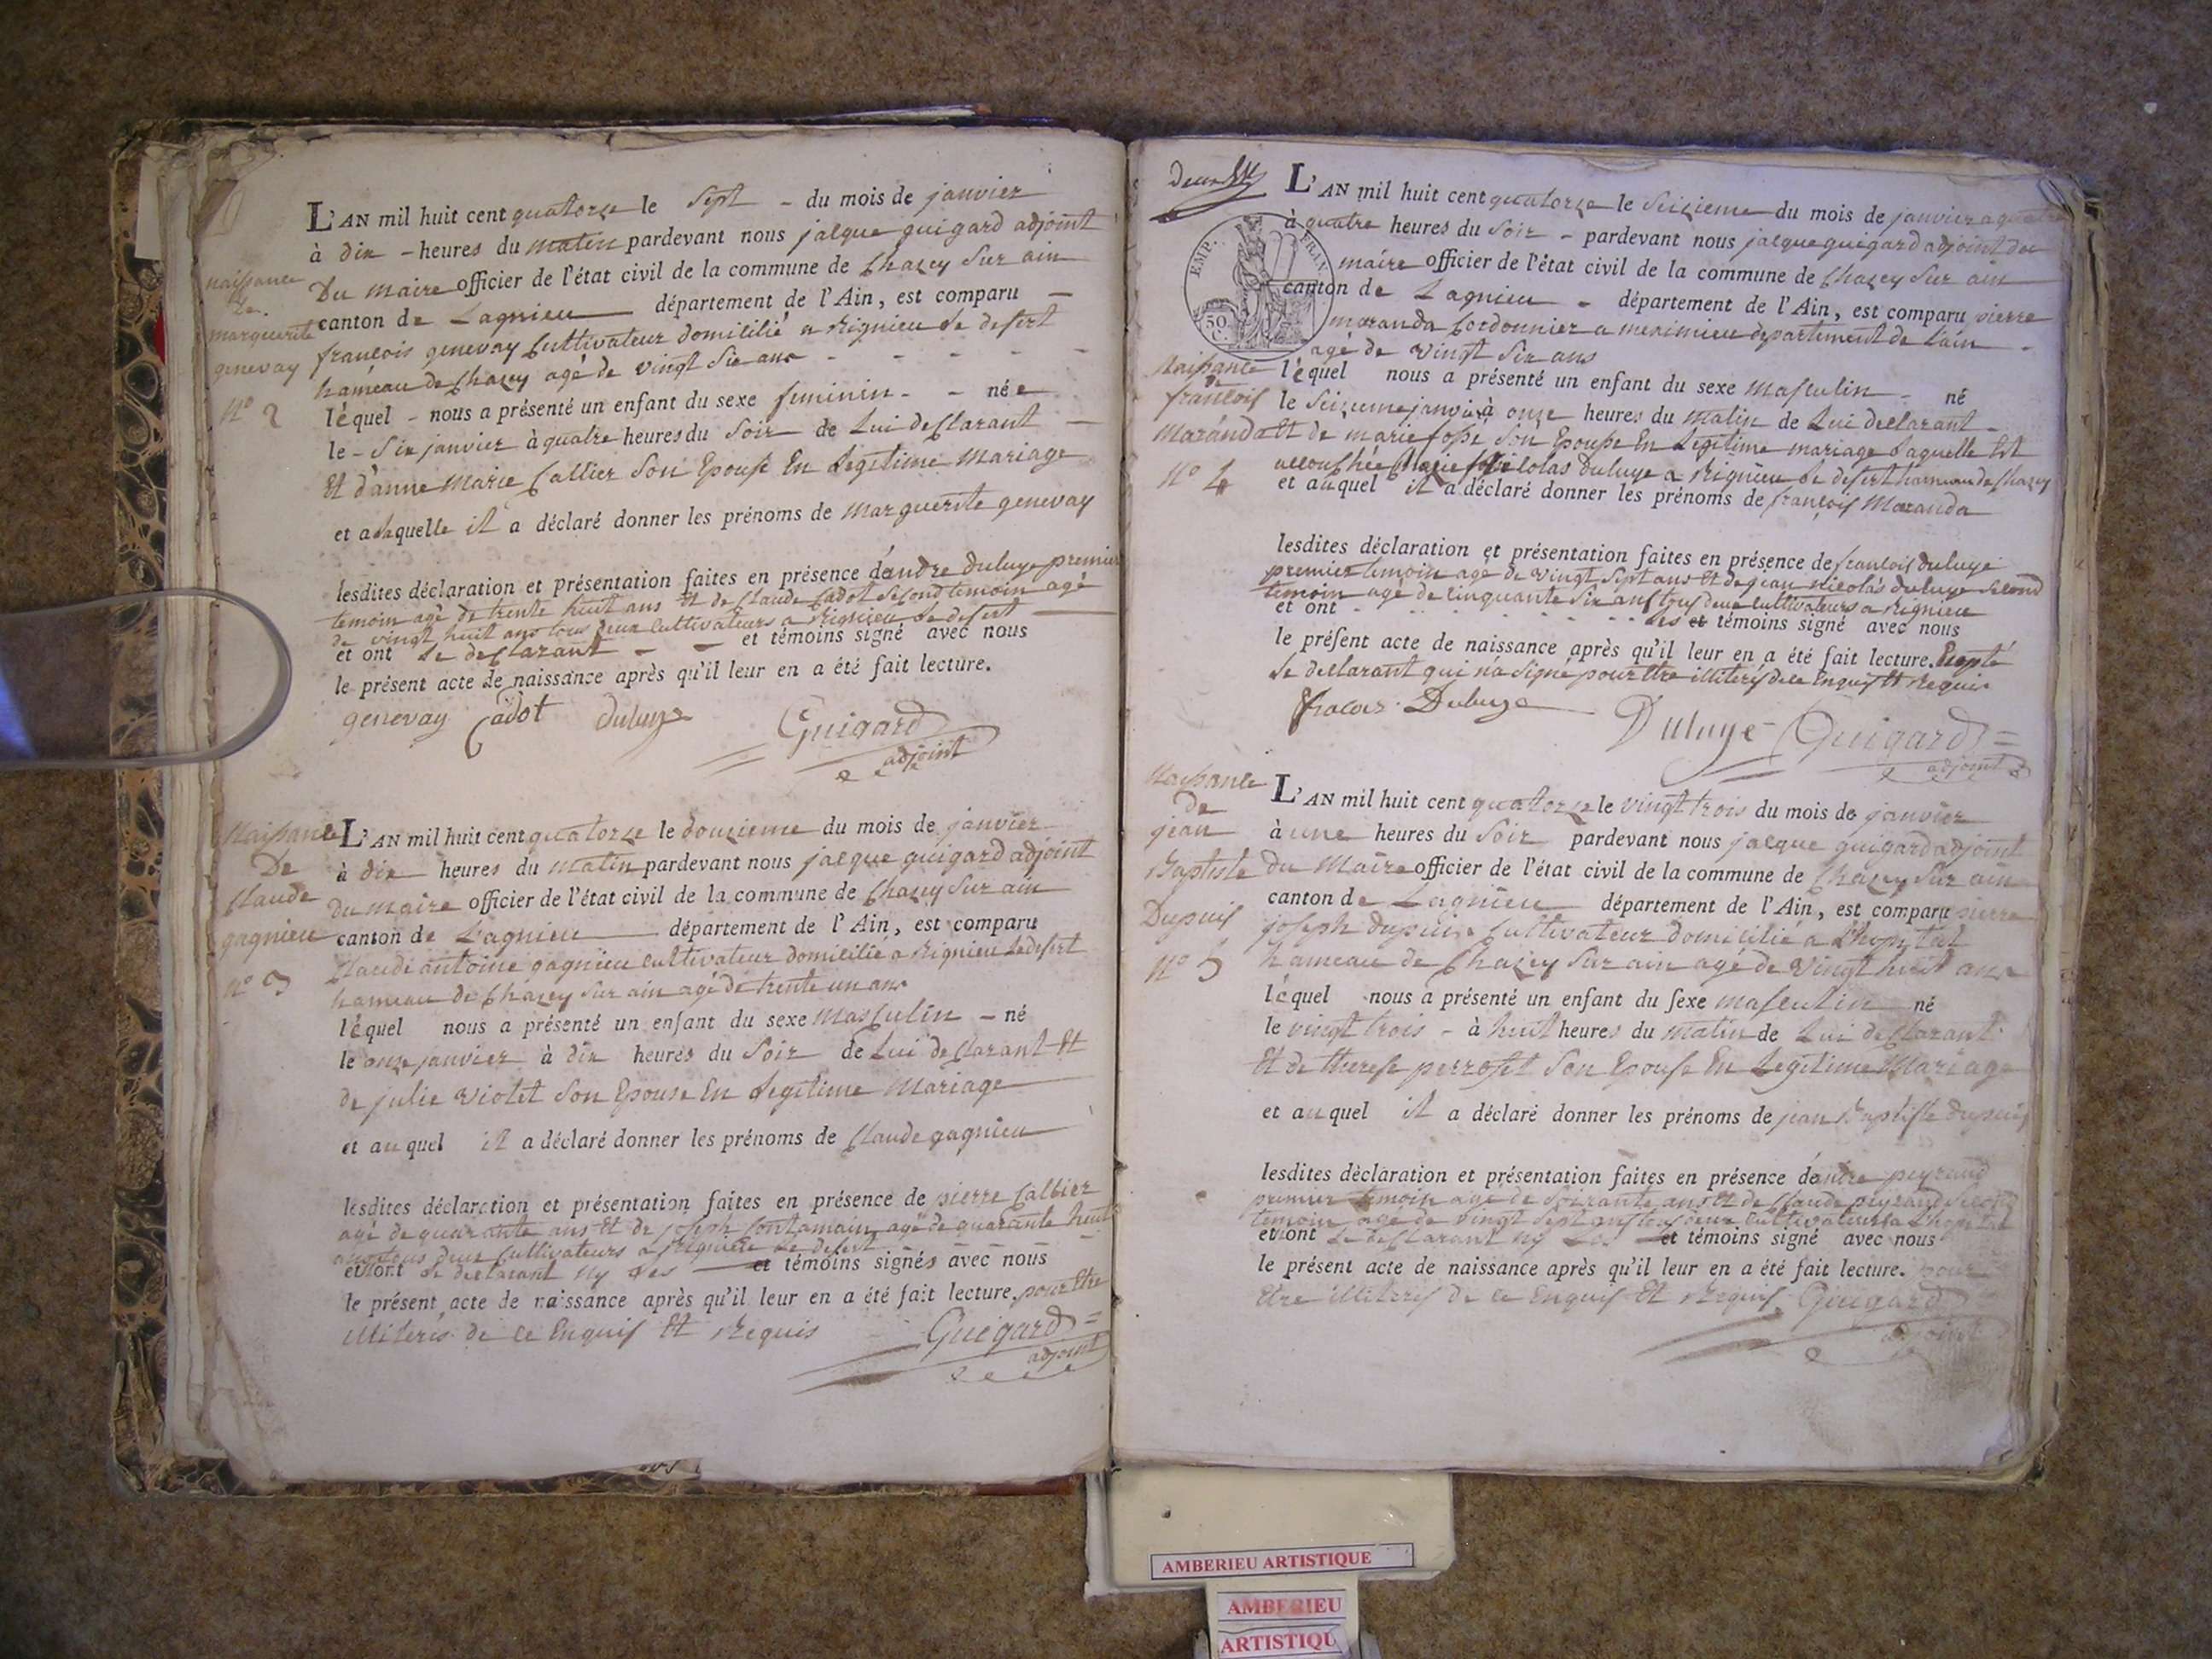 naissance
de
marguerite
genevay
N° 2
L'AN mil huit cent quatorze le sept - du mois de janvier
à dix - heures du matin pardevant nous jacque guigard adjoint
Du maire officier de l'état civil de la commune de Chazey sur ain
canton de Lagnieu département de l'Ain, est comparu
francois genevay Cultivateur domicilié a Rignieu Le desert
hameau de Chazey agé de vingt six ans
léquel - nous a présenté un enfant du sexe feminin - - née
le - six janvier à quatre heures du soir de Lui declarant
Et d'anne marie Callier son Epouse En Legitime mariage
et a laquelle il a déclaré donner les prénoms de marguerite genevay
lesdites déclaration et présentation faites en présence d'andre duluye premier
temoin agé de trente huit ans Et de Claude Cadot second temoin agé
de vingt huit ans tous deux Cultivateurs a Rignieu Le desert
et ont Le declarant - - et témoins signé avec nous
le présent acte de naissance après qu'il leur en a été fait lecture.
genevay Cadot duluye Guigard
adjoint
Naissance
De
Claude
gagnieu
n° 3
L'AN mil huit cent quatorze le douzieme du mois de janvier
à dix heures du matin pardevant nous jacque guigard adjoint
du maire officier de l'état civil de la commune de Chazey sur ain
canton de Lagnieu département de l'Ain, est comparu
Claude antoine gagnieu cultivateur domicilié a Rignieu Le desert
hameau de Chazey sur ain agé de trente un ans
léquel nous a présenté un enfant du sexe masculin - né
le onze janvier à dix heures du soir de Lui declarant Et
de julie violet son Epouse En Legitime Mariage
et au quel il a déclaré donner les prénoms de Claude gagnieu
lesdites déclaration et présentation faites en présence de pierre Callier
agé de quarante ans Et de joseph Contamain agé de quarante huit
ans tous deux Cultivateurs a Rignieu Le desert
et n'ont Le declarant ny Les et témoins signés avec nous
le présent acte de naissance après qu'il leur en a été fait lecture. pour Etre
illiterés de ce Enquis Et Requis
Guigard
adjoint
deux
EMP. FRAN.
50 C.
Naissance
de
francois
Maranda
N° 4
L'AN mil huit cent quatorze le seizieme du mois de janvier a quatre
à quatre heures du soir - pardevant nous jacque guigard adjoint du
maire officier de l'état civil de la commune de Chazey sur ain
canton de Lagnieu - département de l'Ain, est comparu pierre
maranda Cordonnier a meximieu departement de Lain
agé de vingt six ans
léquel nous a présenté un enfant du sexe masculin - né
le seizieme janvier à onze heures du matin de Lui declarant
Et de marie fossé son Epouse En Legitime mariage Laquelle Est
accouchée nicolas duluye a Rignieu Le desert hameau de Chazey
et au quel il a déclaré donner les prénoms de françois Maranda
lesdites déclaration et présentation faites en présence de francois duluye
premier temoin agé de vingt sept ans Et de jean nicolas duluye second
temoin agé de cinquante six ans tous deux Cultivateurs a Rignieu
et ont Les et témoins signé avec nous
le présent acte de naissance après qu'il leur en a été fait lecture. Excepté
Le declarant qui n'a signé pour Etre illiteré de ce Enquis Et Requis
Duluye Duluye Guigard
adjoint
Naissance
de
jean
Baptiste
Dupuis
N° 5
L'AN mil huit cent quatorze le vingt trois du mois de janvier
à une heures du soir pardevant nous jacque guigard adjoint
du Maire officier de l'état civil de la commune de Chazey sur ain
canton de Lagnieu département de l'Ain, est comparu pierre
joseph dupuis Cultivateur domicilié a Lhopital
hameau de Chazey sur ain agé de vingt huit ans
léquel nous a présenté un enfant du sexe masculin né
le vingt trois - à huit heures du matin de Lui declarant
Et de therese perrosset son Epouse En Legitime Mariage
et au quel il a déclaré donner les prénoms de jean Baptiste dupuis
lesdites déclaration et présentation faites en présence d'andre peyraud
premier temoin agé de soixante ans Et de Claude peyraud second
temoin agé de vingt sept ans tous deux cultivateurs a Lhopital
et n'ont Le declarant ny Les et témoins signé avec nous
le présent acte de naissance après qu'il leur en a été fait lecture. pour
Etre illiterés de ce Enquis Et Requis Guigard
adjoint
AMBERIEU ARTISTIQUE
AMBERIEU
ARTISTIQU